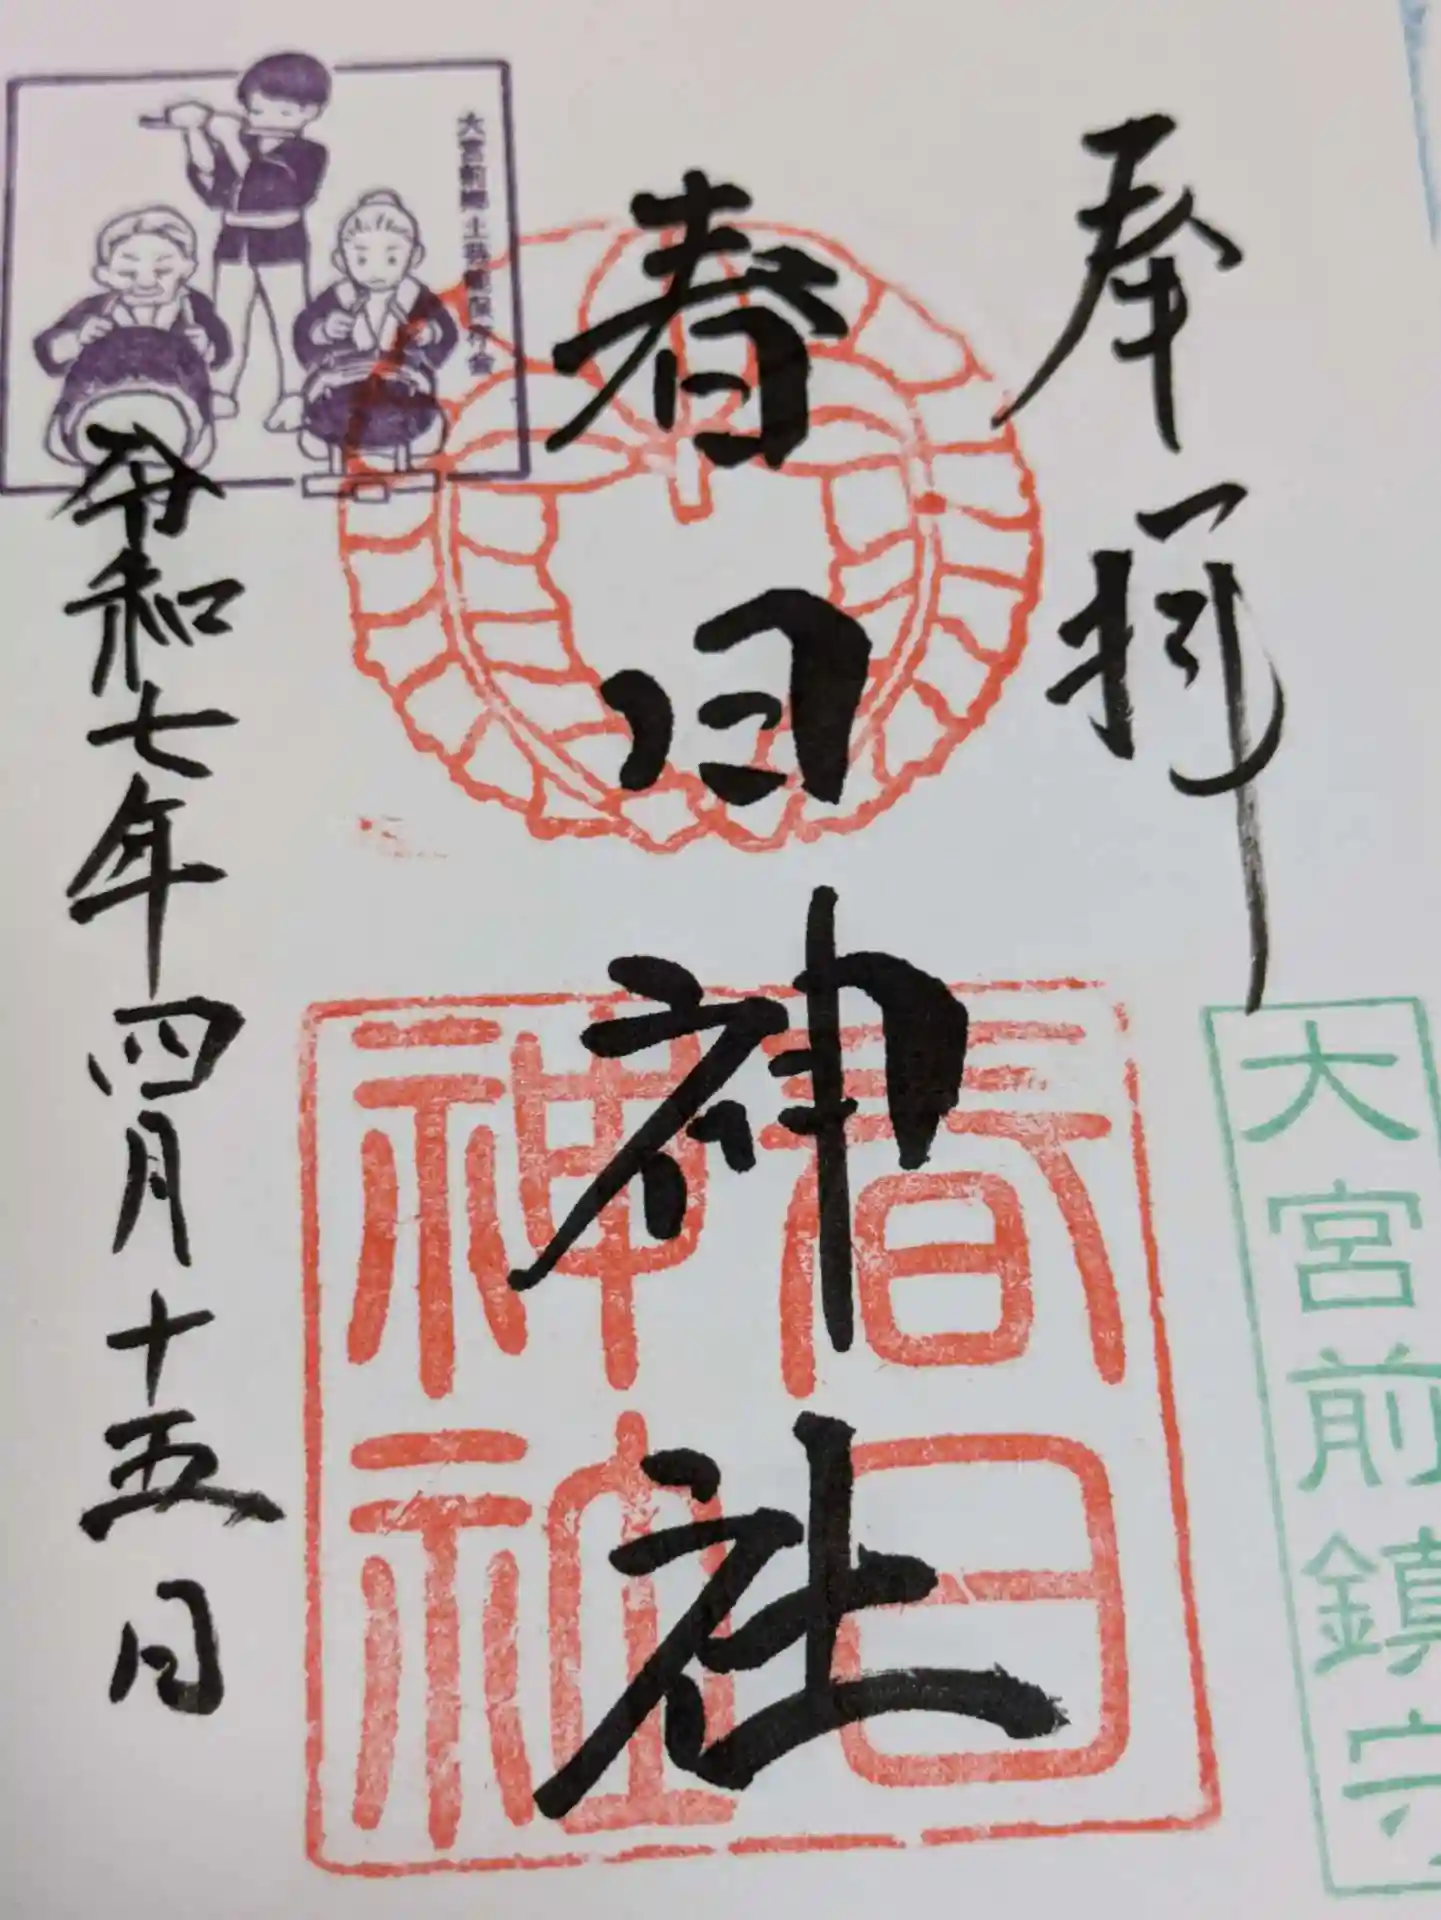 奉拝
大宮前鎮守
春日神社
春日
神社
令和七年四月十五日
大宮前郷土芸能保存会